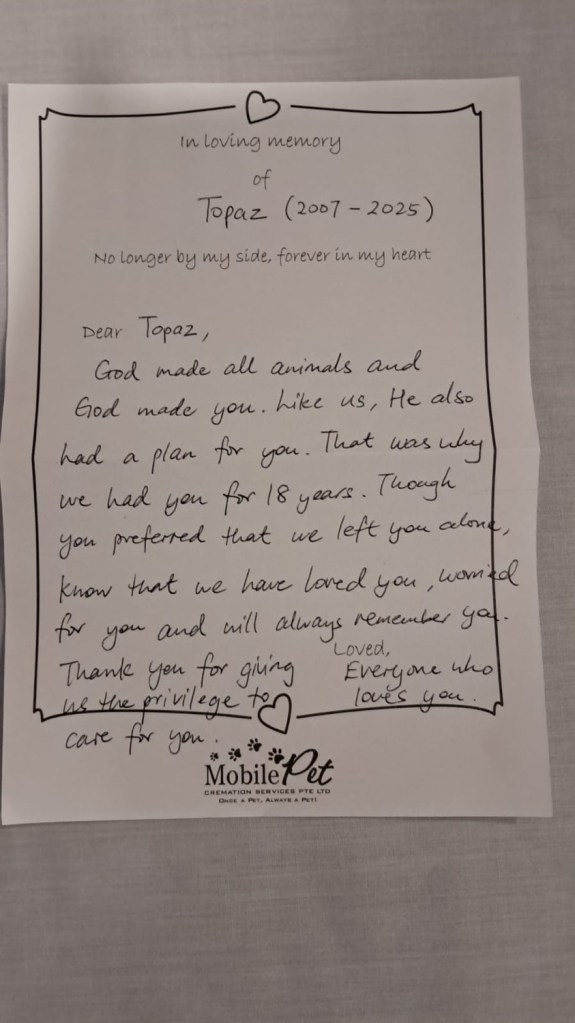 In loving memory
of
Topaz (2007 - 2025)
No longer by my side, forever in my heart
Dear Topaz,
God made all animals and
God made you. Like us, He also
had a plan for you. That was why
we had you for 18 years. Though
you preferred that we left you alone,
know that we have loved you, worried
for you and will always remember you.
Thank you for giving
us the privilege to
care for you.
Loved,
Everyone who
loves you.
Mobile Pet
CREMATION SERVICES PTE LTD
ONCE A PET, ALWAYS A PET!